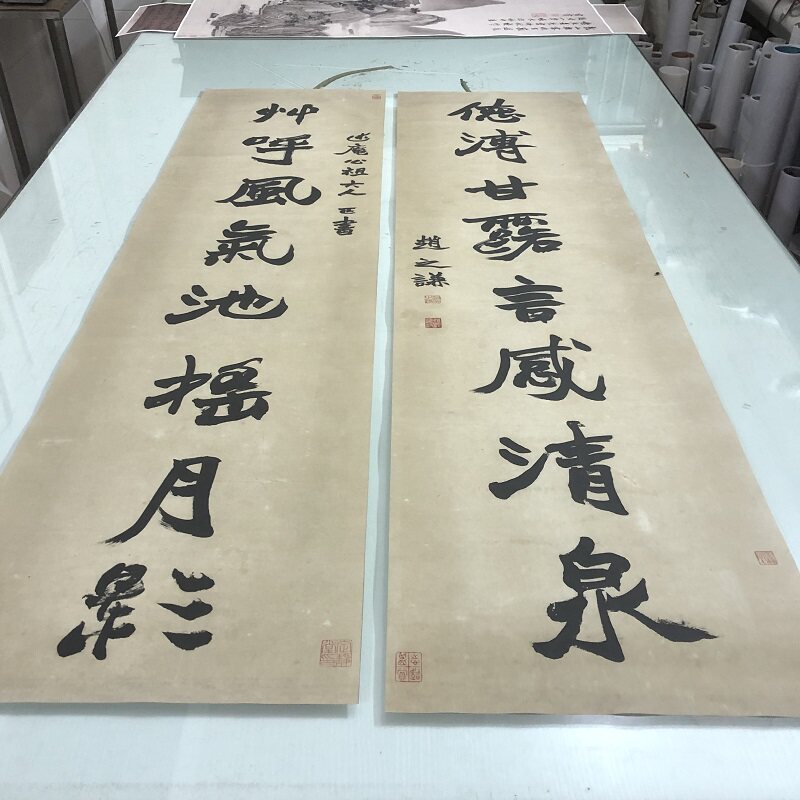 艸呼風氣池搖月影
述庵公祖大人正書
德溥甘露言感清泉
趙之謙